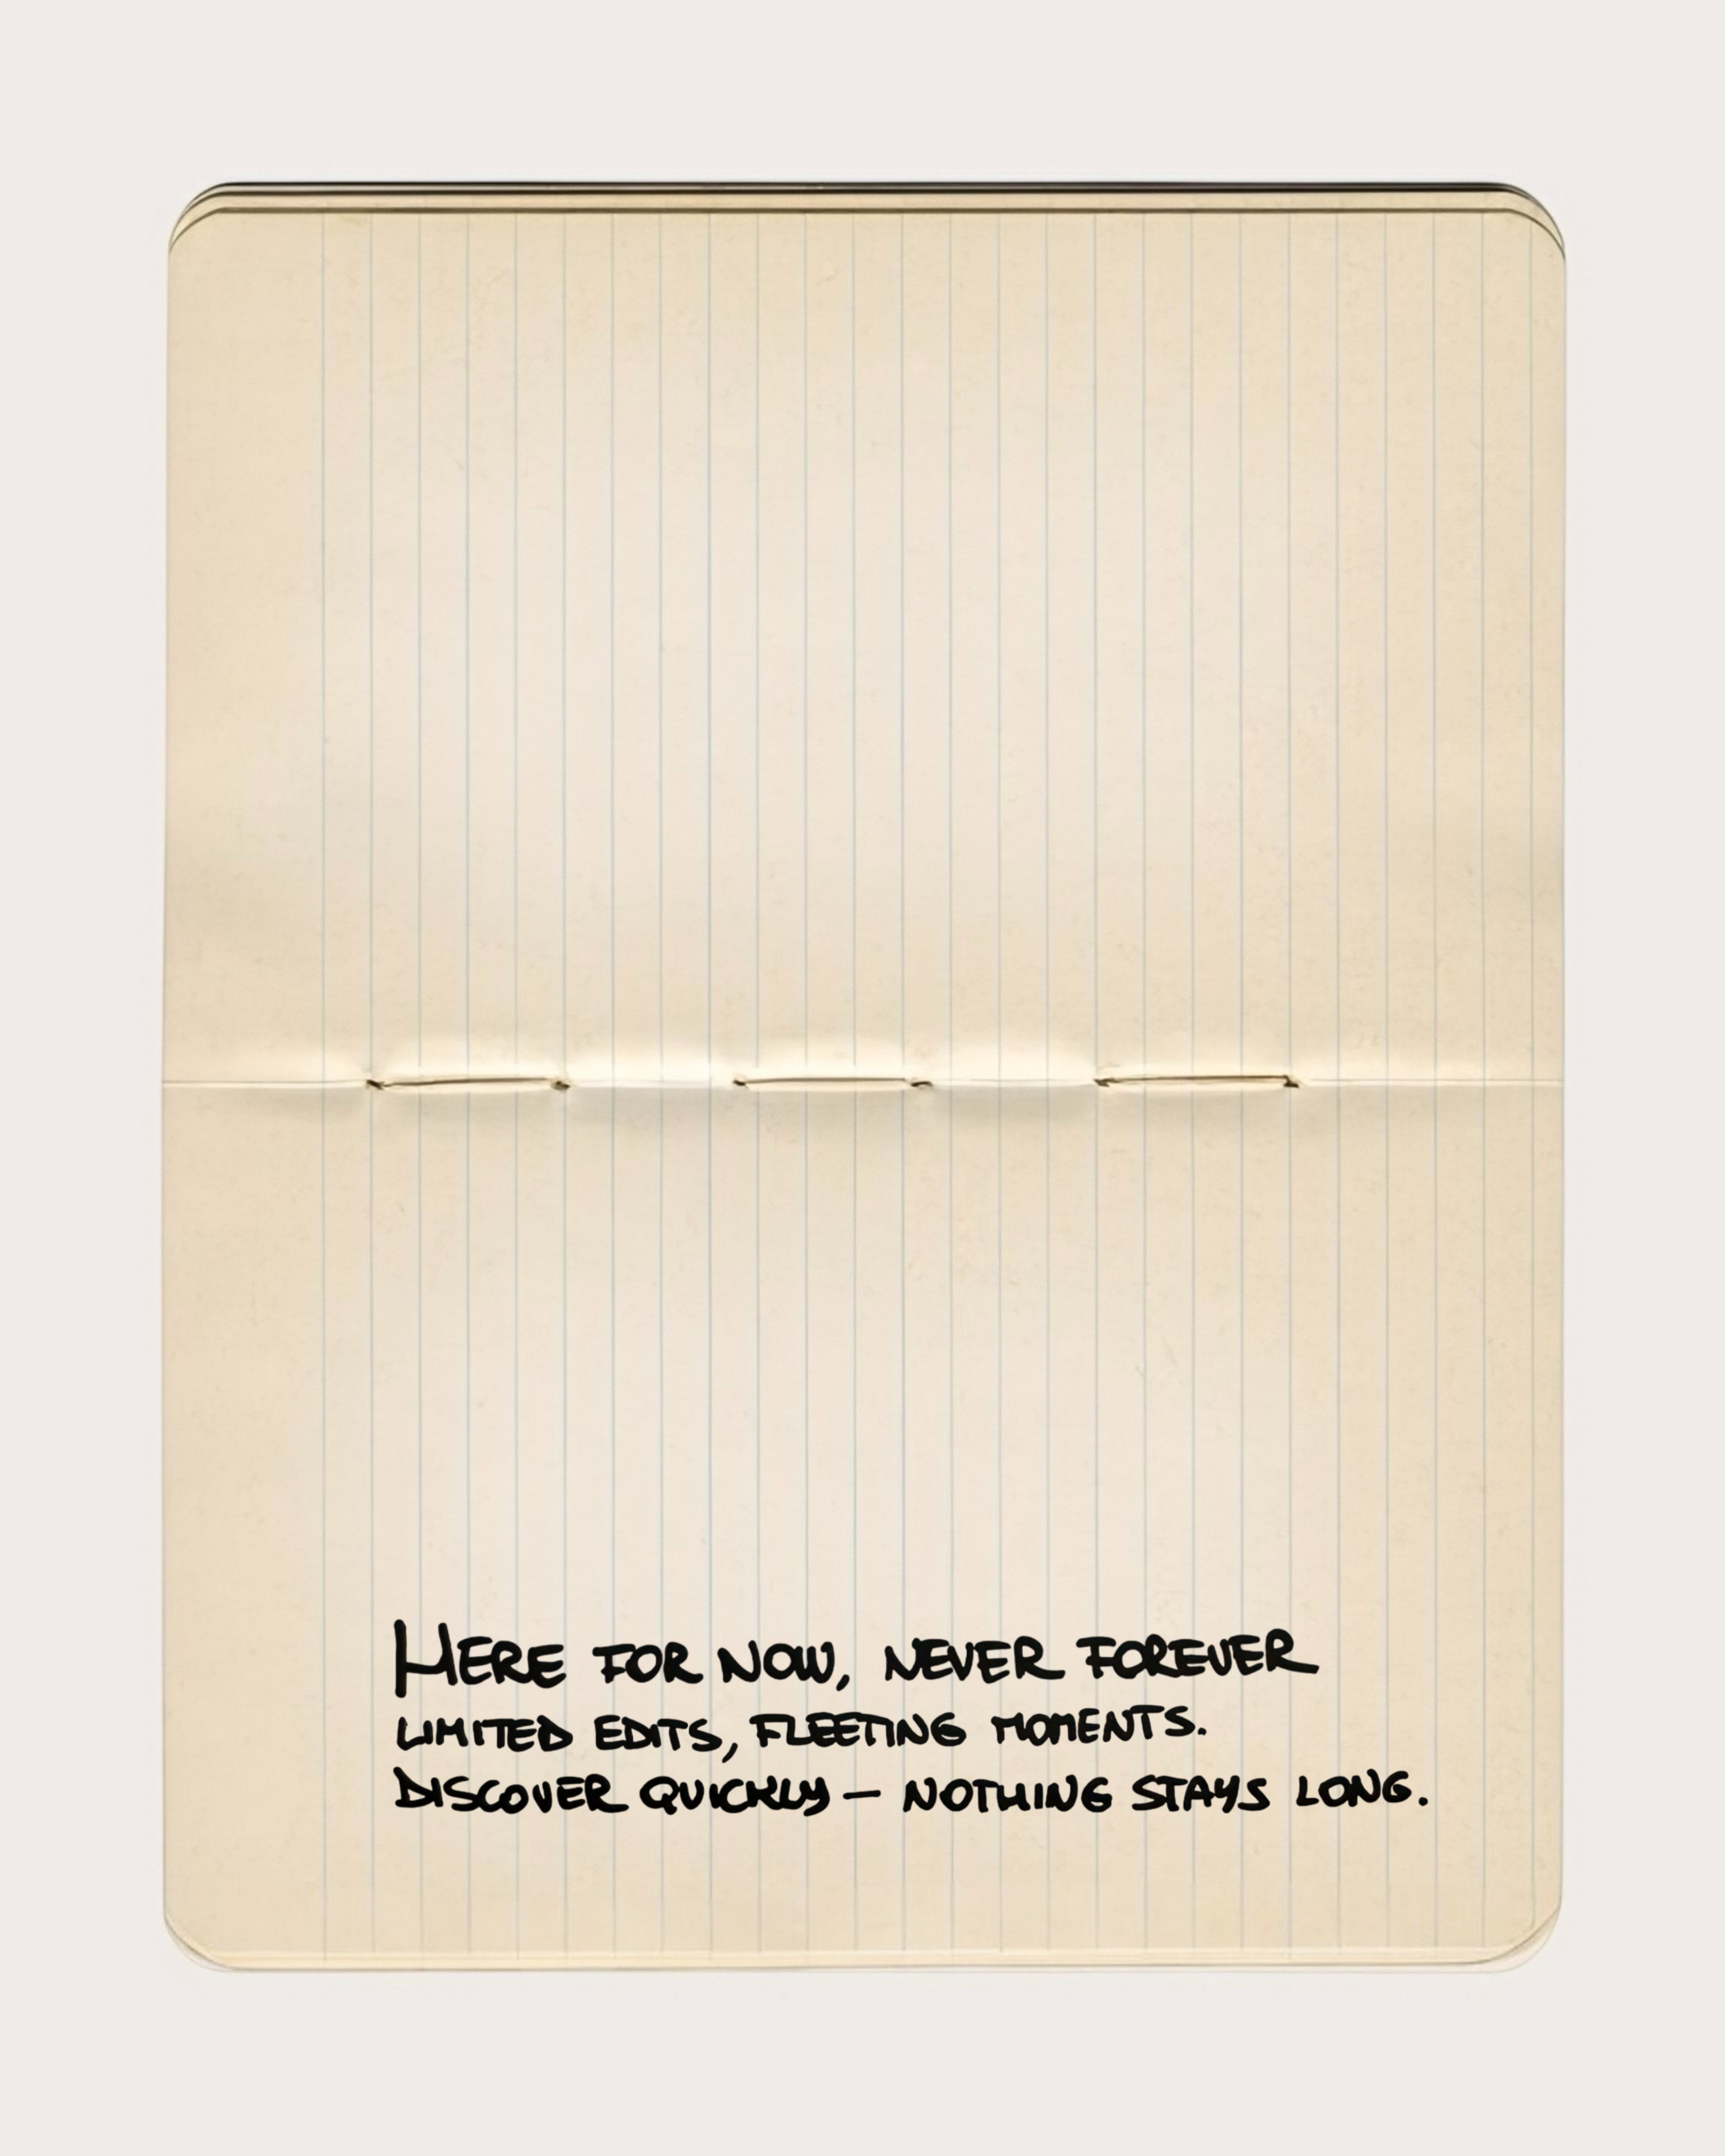 HERE FOR NOW, NEVER FOREVER
LIMITED EDITS, FLEETING MOMENTS.
DISCOVER QUICKLY — NOTHING STAYS LONG.